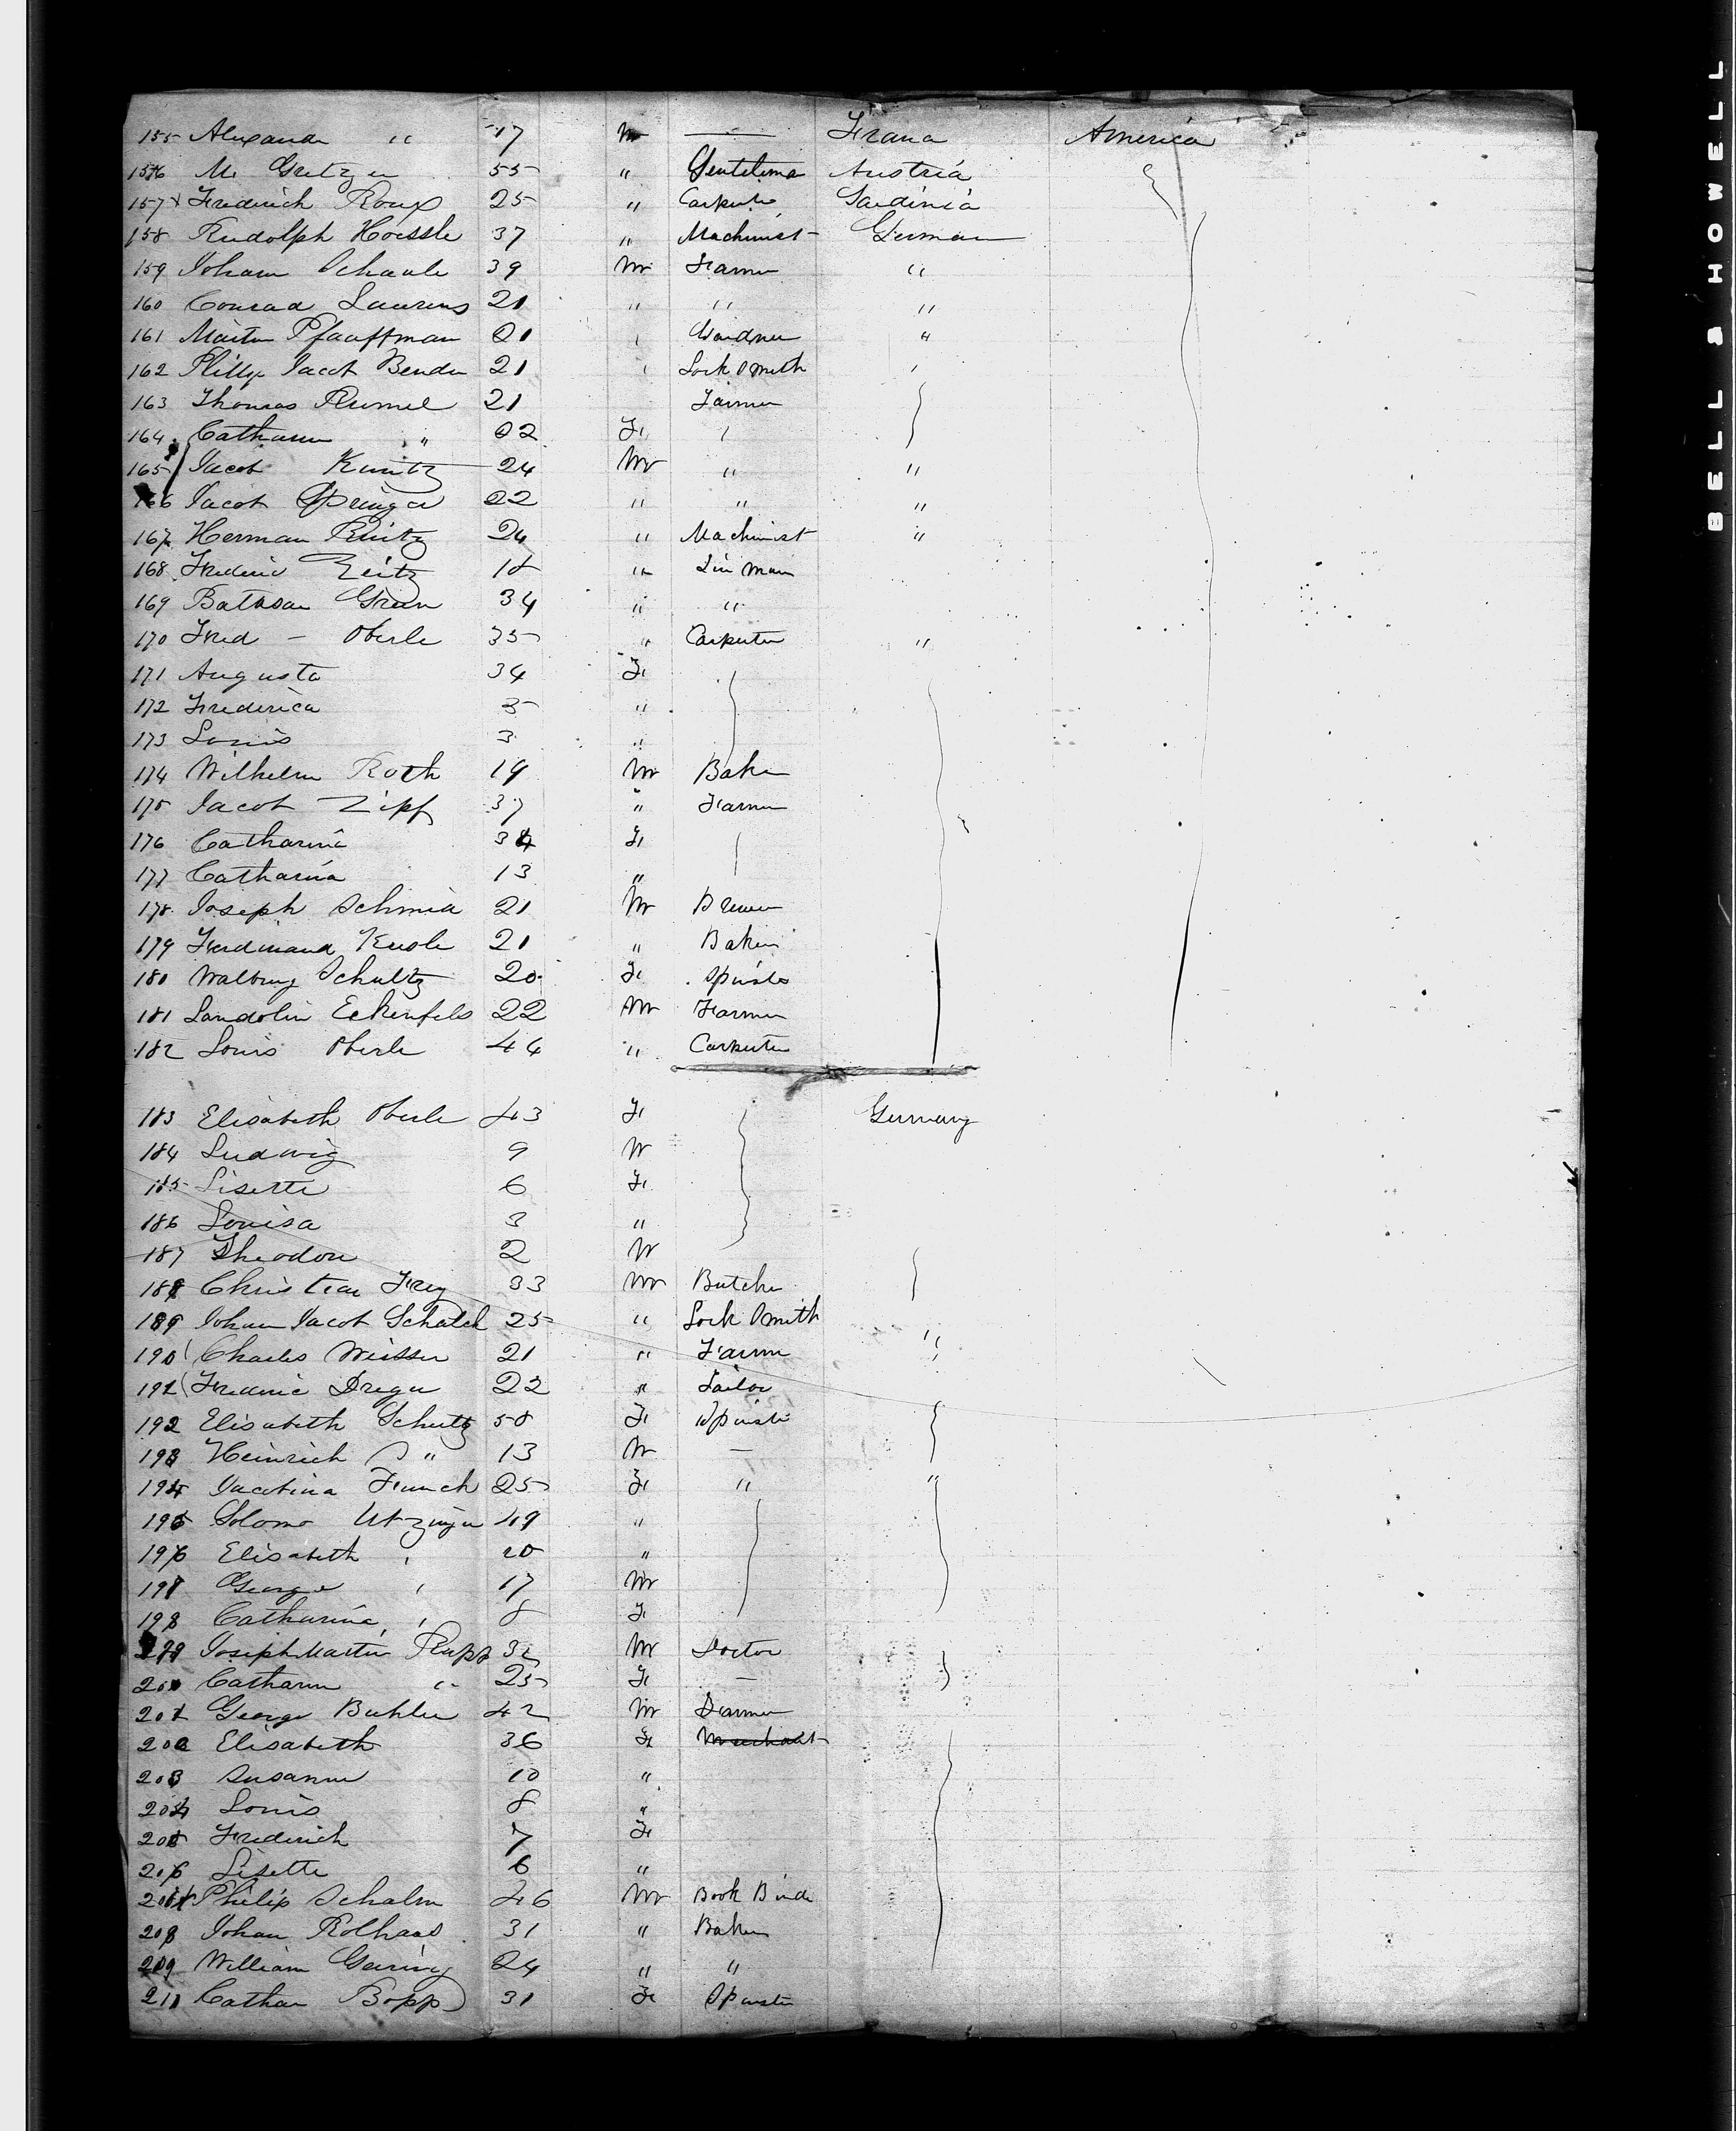 155 Alexander " 17 m — France America
156 M. Gretzer 55 " Gentlema Austria
157 x Frederich Roux 25 " Carpente Sardinia
158 Rudolph Hoessle 37 " Machinist German
159 Johann Schaule 39 m Farmer "
160 Conrad Laurens 21 " " "
161 Martin Pfauffman 21 " "
162 Philip Jacob Bender 21 " Lock Smith "
163 Thomas Rumel 21 Farmer
164 Catharin " 22 F "
165 Jacob Kuntz 24 M " "
166 Jacob Springer 22 " " "
167 Herman Reitz 24 " Machinist "
168 Frederic Zeitz 18 " Tin Man
169 Baltasar Green 34 " "
170 Fred - Oberle 35 " Carpenter "
171 Augusta 34 F
172 Frederica 5 "
173 Louis 3 "
174 Wilhelm Roth 19 M Baker
175 Jacob Zipf 37 " Farmer
176 Catharina 34 F
177 Catharina 13 "
178 Joseph Schmid 21 M Brewer
179 Ferdinand 21 " Baker
180 Walburg Schultz 20 F Spinster
181 Landolin Eckenfels 22 M Farmer
182 Louis Oberle 44 " Carpenter
183 Elisabeth Oberle 43 F Germany
184 Ludwig 9 M
185 Lisette 6 F
186 Louisa 3 "
187 Theodore 2 M
188 Christian Frey 33 M Butcher
189 Johan Jacob Schalch 25 " Lock Smith
190 Charles Weisser 21 " Farmer "
191 Frederic Dreger 22 " Tailor "
192 Elisabeth Schultz 58 F Spinster
193 Heinrich S " 13 M —
194 Jacobina Funch 25 F " "
195 Solomo Utzinger 49 "
196 Elisabeth " 20 "
197 George " 17 M
198 Catharina " 8 F
199 Joseph Martin Rapp 32 M Doctor
200 Catharin " 25 F —
201 George Buhler 42 M Farmer
202 Elisabeth 36 F Merchant
203 Susanne 10 "
204 Louis 8 "
205 Frederich 7 F
206 Lisette 6 "
207 Philip Schalm 46 M Book Binde
208 Johan Rolhaas 31 " Baker
209 William Gering 24 " "
211 Cathar Bopp 31 F Spinster
BELL & HOWELL